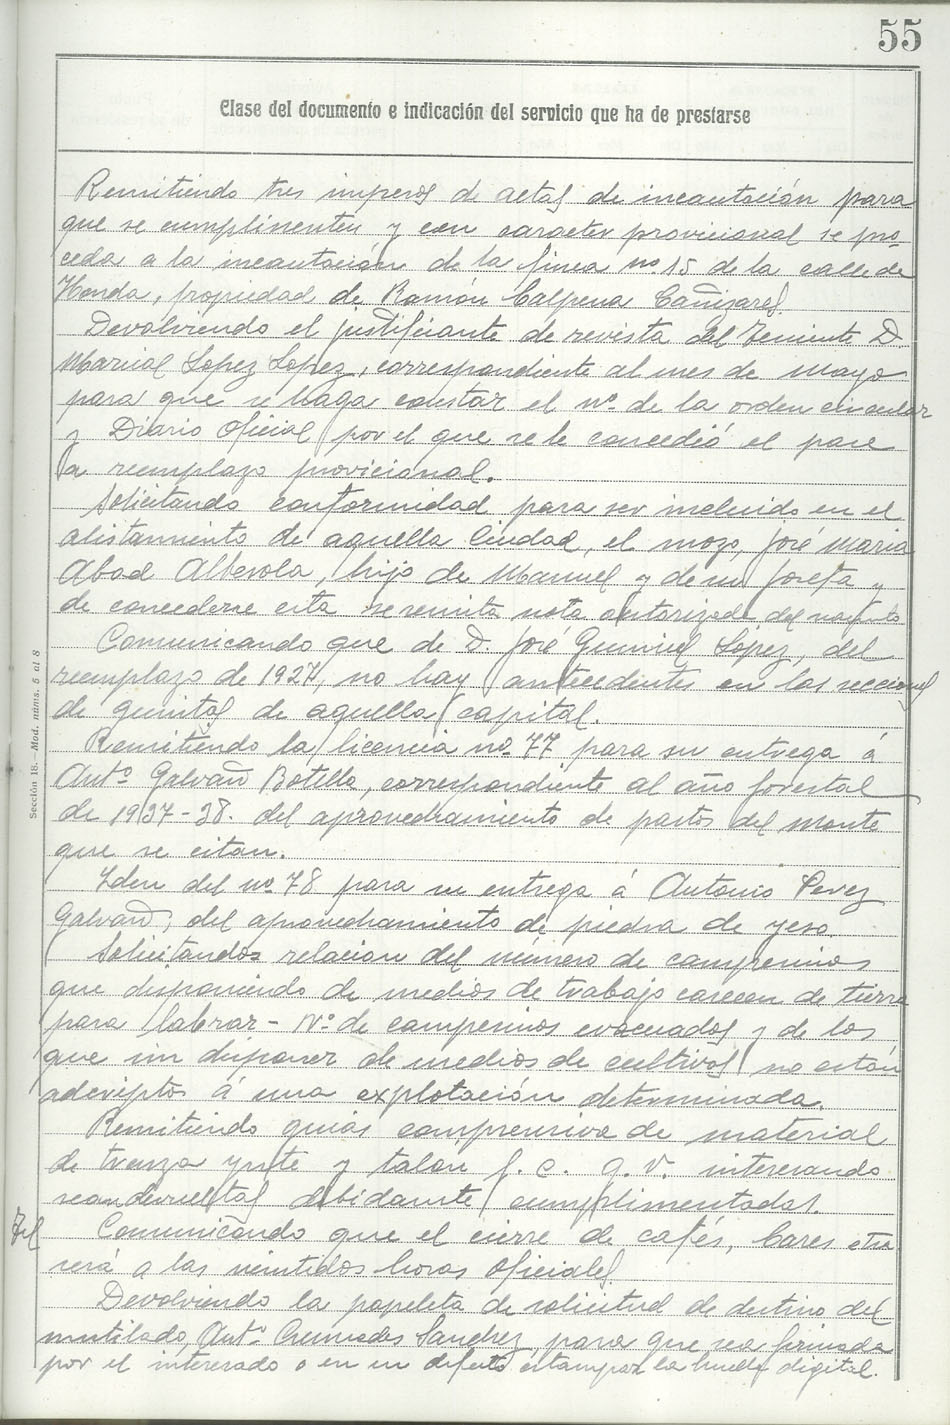 55
Clase del documento e indicación del servicio que ha de prestarse
Remitiendo tres impesos de actas de incautación para
que se cumplimenten y con caracter provicional se pro-
ceda a la incautación de la finca nº 15 de la calle de
Honda, propiedad de Ramón Calpena Cañizares.
Devolviendo el justificante de revista del Teniente D.
Marcial Lopez Lopez, correspondiente al mes de Mayo
para que se haga costar el nº de la orden circular
y Diario Oficial por el que se le concedió el pase
a reemplazo provicional.
Solicitando conformidad para ser incluido en el
alistamiento de aquella Ciudad, el mozo, José Maria
Abad Alberola, hijo de Manuel y de Josefa y
de concederse esta se remita nota autorizada del
Comunicando que de D. José Gumiel López, del
reemplazo de 1927, no hay antecedentes en las secciones
de quintas de aquella capital.
Remitiendo la licencia nº 77 para su entrega á
Antº Galvañ Botella, correspondiente al año forestal
de 1937-38. del aprovechamiento de pastos del monte
que se citan.
Iden del nº 78 para su entrega á Antonio Perez
Galvañ, del aprovechamiento de piedra de yeso.
Solicitando relación del número de campesinos
que disponiendo de medios de trabajo carecen de tierra
para labrar - Nº de campesinos evacuados y de los
que sin disponer de medios de cultivos no están
adcriptos á una explotación determinada.
Remitiendo guias comprensiva de material
de trenza yute y talon f. c. g. v. interesando
sean devueltas debidamte cumplimentadas.
Tel Comunicando que el cierre de cafés, bares etc
será a las veintidos horas oficiales.
Devolviendo la papeleta de solicitud de destino del
mutilado, Antº Cremades Sanchez, para que sea firmada
por el interesado o en su defecto estampar la huella digital.
Sección 18.-Mod. núms. 5 al 8